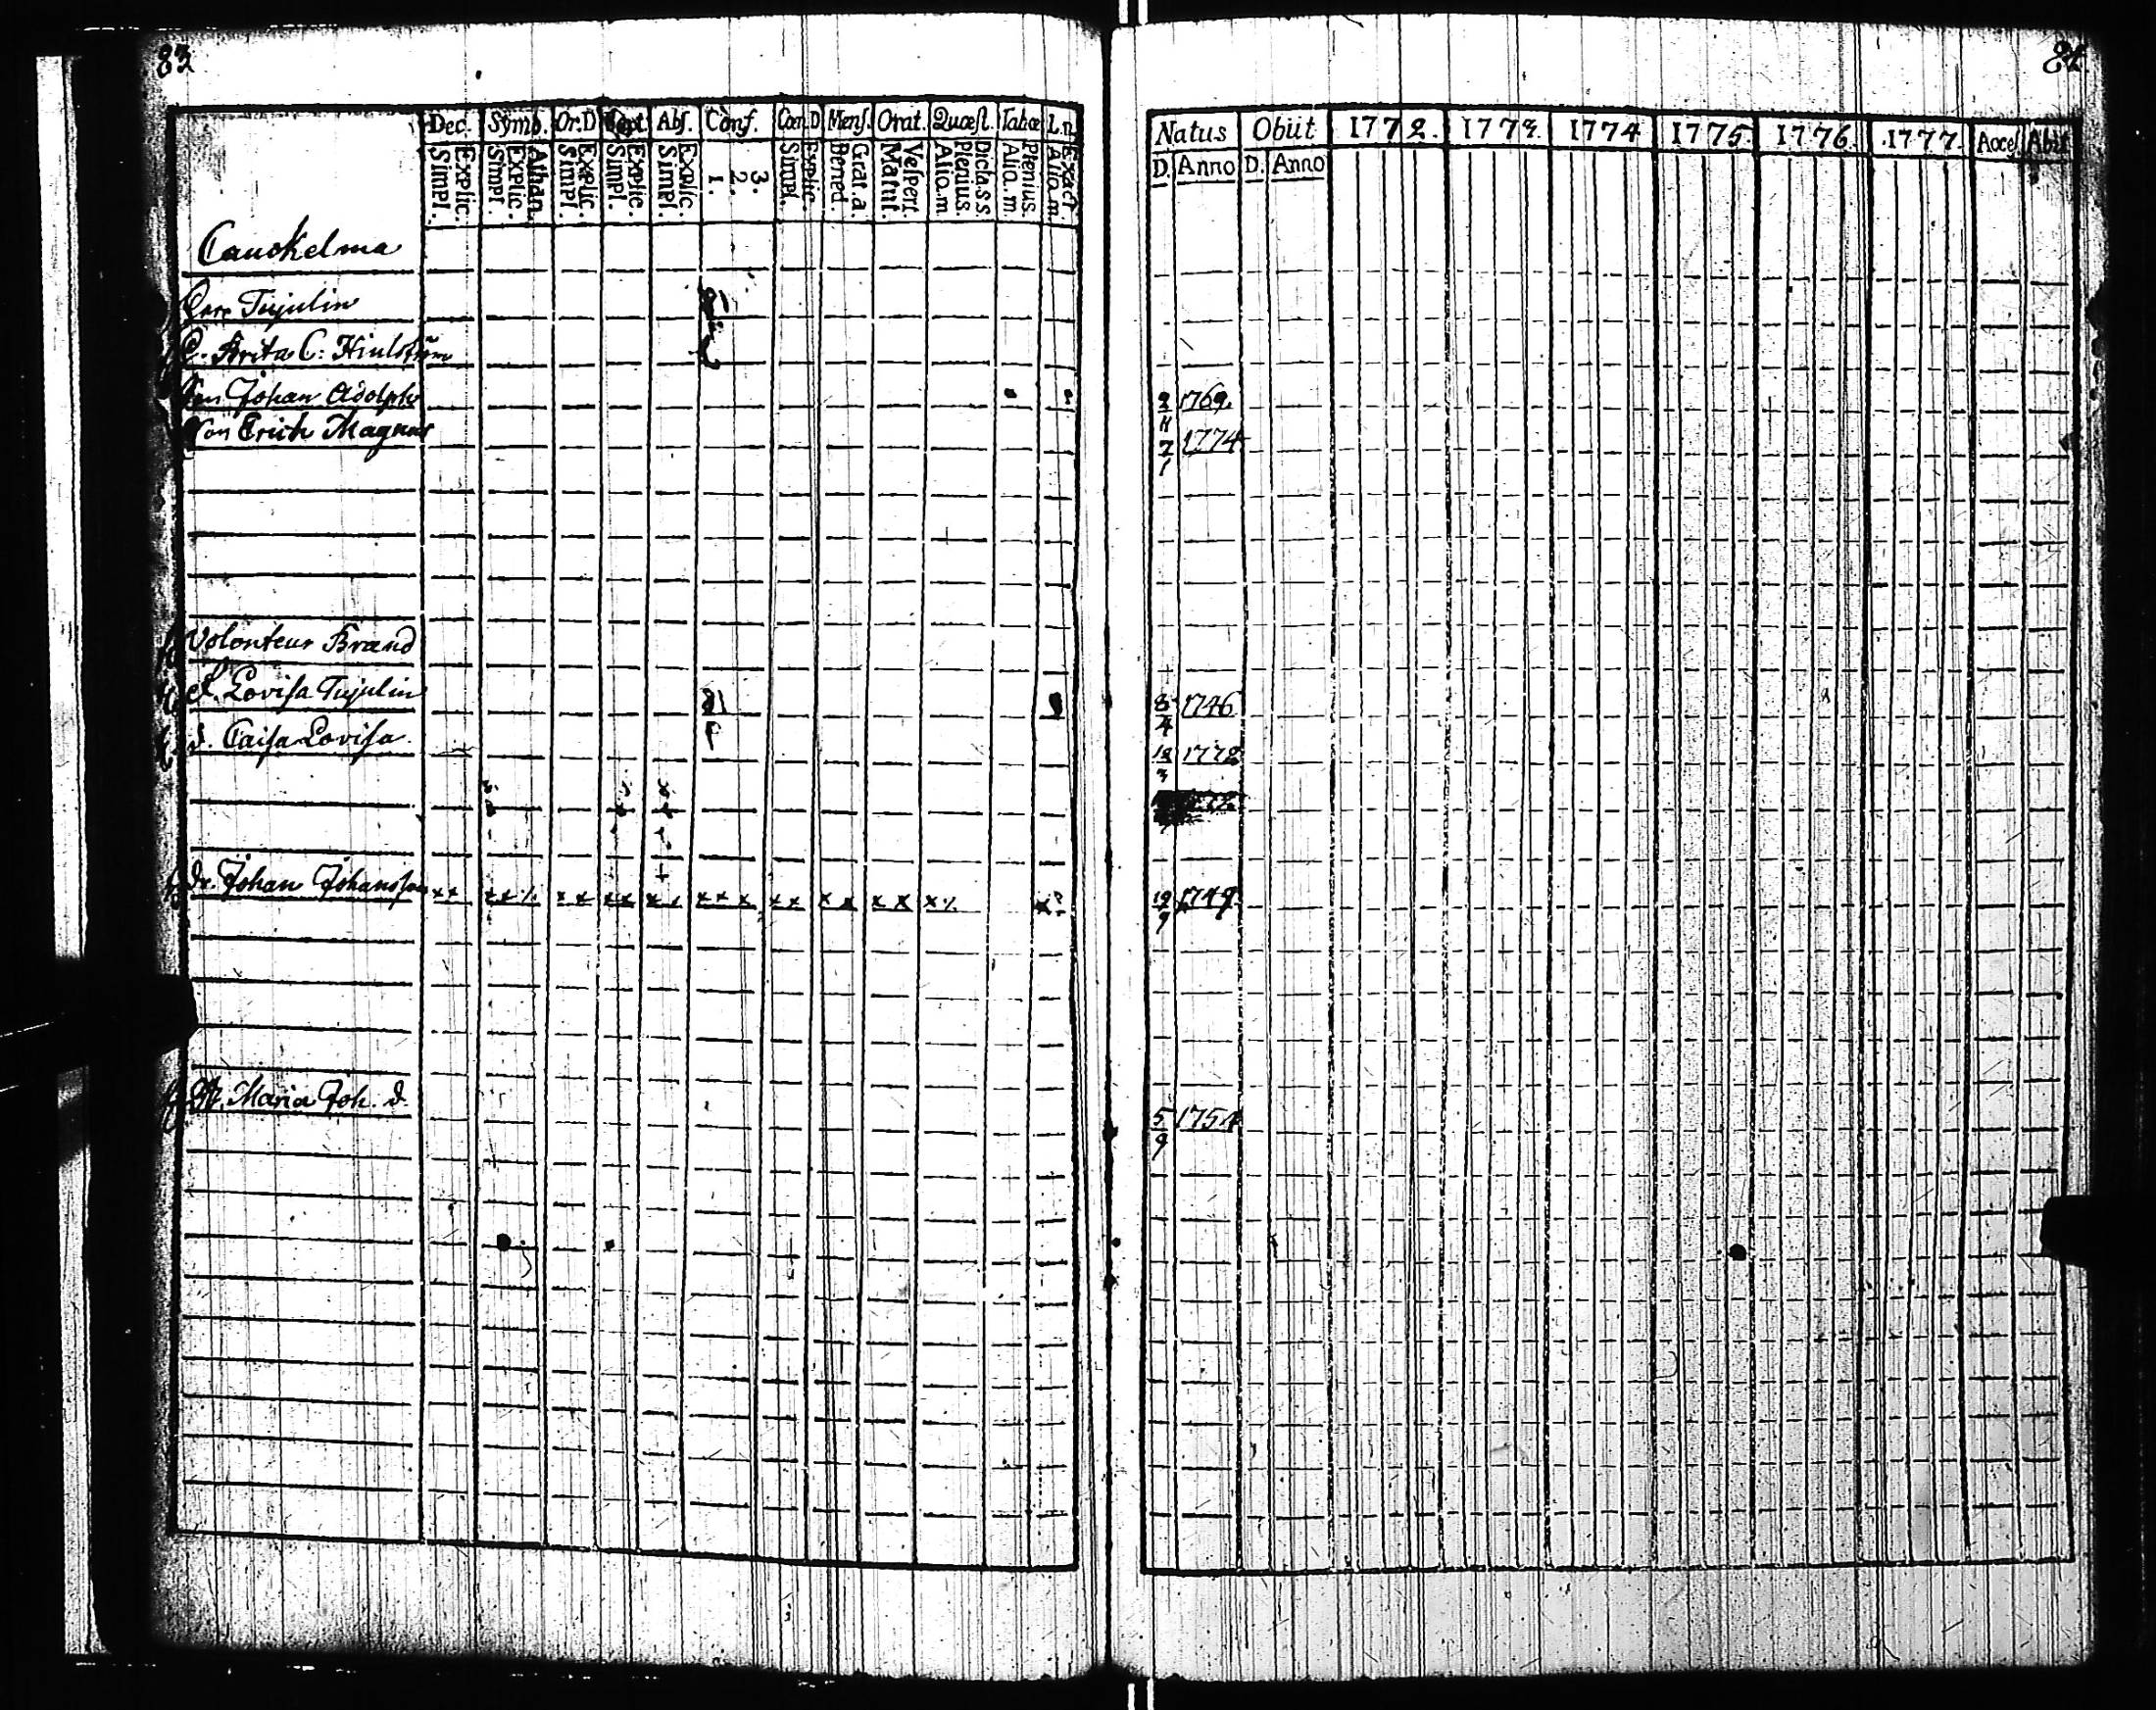 83
Dec. Symb. Or.D Bapt. Abs. Conf. Cœn.D Mens. Orat. Quæst. Tabœ L.n.
Explic. Simpl. Athan. Explic. Simpl. Explic. Simpl. Explic. Simpl. Explic. Simpl. 3. 2. 1. Explic. Simpl. Grat.a. Bened. Vespert. Matut. Dicta.s.s Plenius. Aliq.m Plenius. Aliq.m Exact. Aliq.m.
Cauckelma
Tujulin
Brita C: Hinlström
Son Johan Adolph
Son Erich Magnus
Volonteur Brand
Lovisa Tujulin
d. Caisa Lovisa
dr. Johan Johansson
Maria Joh. d.
84
Natus Obiit 1772. 1773. 1774 1775. 1776. 1777. Acces. Abit
D. Anno D. Anno
2/11 1769.
7/1 1774
8/4 1746
18/3 1772
19/9 1749.
5/9 1754